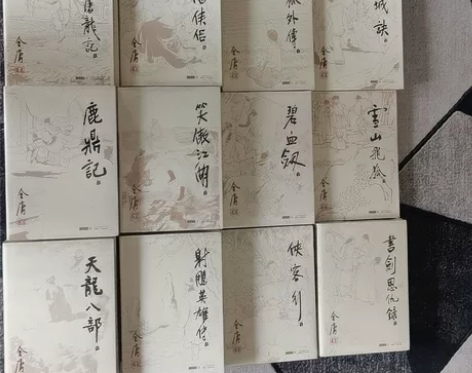 屠龍記
金庸
俠侶
金庸
狐外傳
金庸
城訣
金庸
鹿鼎記
金庸
笑傲江湖
金庸
碧血劍
金庸
雪山飛狐
金庸
天龍八部
金庸
射鵰英雄傳
金庸
俠客行
金庸
書劍恩仇錄
金庸